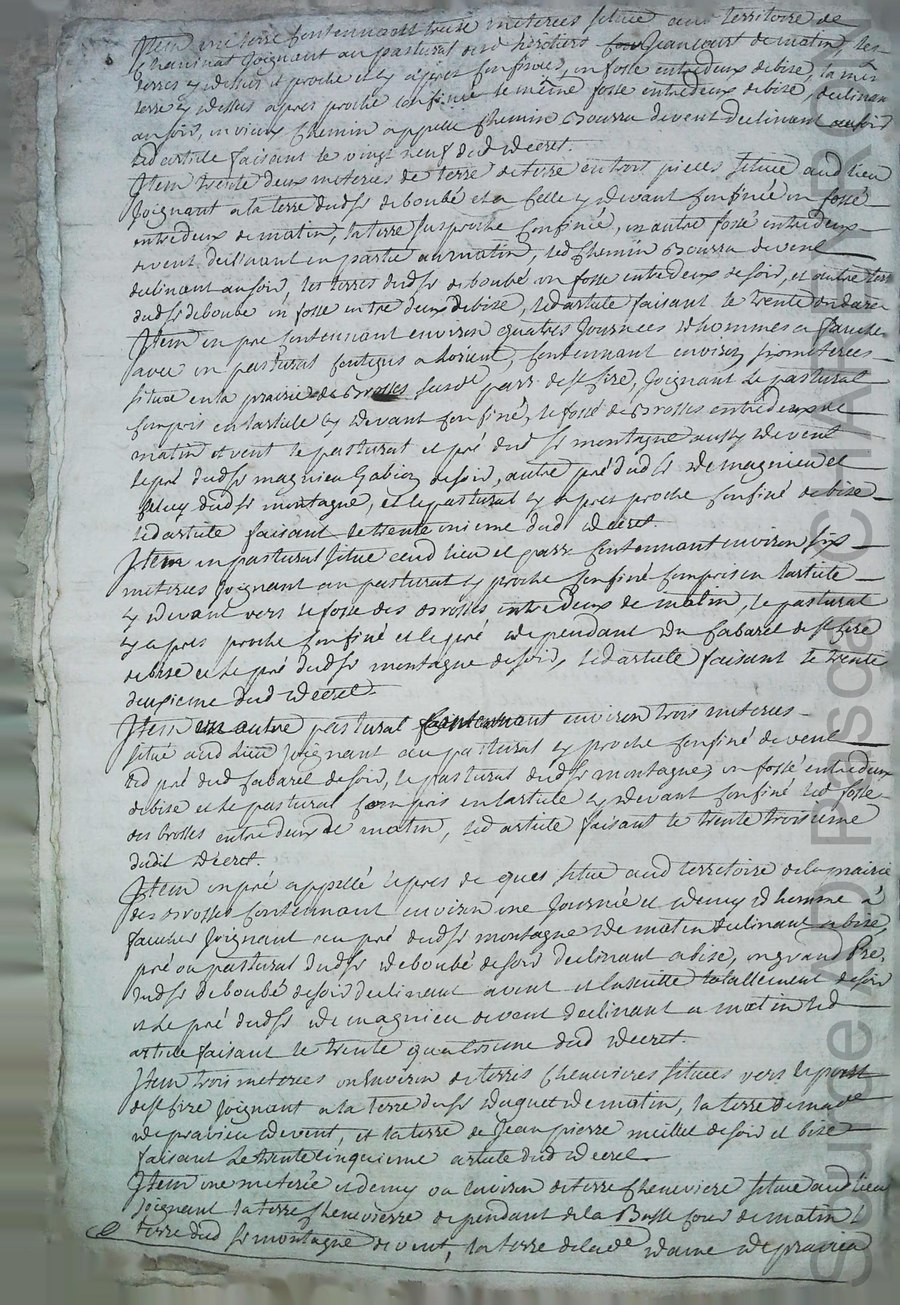 Item une terre contennant treize meterees situé aud territoire de
Chavinat Joignant au pastural desd héritiers Jean court de matin, les
terres cy dessus et proche et cy apres confinée, un fossé entredeux de bise, la mêm
terre cy dessus apres proche confinée le même fossé entredeux de bise, declinan
au soir, un vieux chemin appellé chemin Bourra de vent declinant au soir
led article faisant le vingt neuf dud decret.
Item trente deux meterées de terre en trois pieces situé aud lieu
Joignant a la terre dud sr de boubé et a celle cy devant confinée un fossé
entredeux de matin, la terre sus proche confinée, un autre fossé entredeux
de vent declinant en partie au matin, led chemin Bourra de vent
declinant au soir, les terres dud sr de boubé un fossé entredeux de soir, et autre terre
dud sr de boubé un fossé entre deux de bise, led article faisant le trente dud decret
Item un pré contennant environ quatres Journées d'hommes a faucher
avec un pastural contigus a lorient, contennant environ six meterees
situé en la prairie des Brosses susde parr. de st cire, Joignant le pastural
compris en larticle cy devant confiné, le fossé des Brosses entredeux de
matin et vent le pastural et pré dud sr montagne aussy de vent
le pré dud sr magnieu Gabion de soir, autre pré dud sr de magnieu et
celuy dud sr montagne, et le pastural cy apres proche confiné de bise
led article faisant le trente unieme dud decret
Item un pastural situé aud lieu et parr. contennant environ six
meterées Joignant au pastural cy proche confiné compris en larticle
cy devant vers le fossé des Brosses entredeux de matin, le pastural
cy apres proche confiné et le pré dependant du Cabaret de st Cire
de bise et le pré dud sr montagne de soir, led article faisant le trente
deuxieme dud decret.
Item un autre pastural contennant environ trois meterees
situé aud Lieu Joignant au pastural cy proche confiné de vent
led pré dud cabaret de soir, le pastural dud sr montagne, un fossé entredeux
de bise et le pastural compris en larticle cy devant confiné led fossé
des brosses entre deux de matin, led article faisant le trente troisieme
dudit decret.
Item un pré appellé le pres de ques situé aud territoire de la prairie
des Brosses contennant environ une Journée et demy d'homme à
faucher Joignant au pré dud sr montagne de matin declinant a bise,
pré ou pastural dud sr de boubé de soir declinant a bise, un grand Pré
dud sr de boubé de soir declinant a vent et ensuitte totallement de soir
et le pré dud sr de magnieu de vent declinant a matin led
article faisant le trente quatrieme dud decret.
Item trois meterees ou Environ de terres Chenevieres situées vers le pont
de st cire Joignant a la terre du sr duguet de matin, la terre de made
de pravieu de vent, et la terre de Jean pierre meillet de soir et bise
faisant le trente cinquieme article dud decret.
Item une meterée et demy ou Environ de terre Cheneviere situé aud lieu
Joignant la terre Chenevierre dependant de la Basse Cour de matin l
terre dud sr montagne de vent, la terre de lade dame de pravieu
Source AD Rossat CHARENCIN